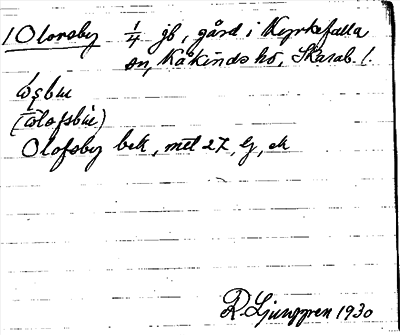 1 Olorsby 1/4 jb, gård i Kyrkefalla
sn, Kåkinds hd, Skarab. l.
(Olofsbu)
Olofsby bek, mtl 27, G, ek
R. Ljunggren 1930